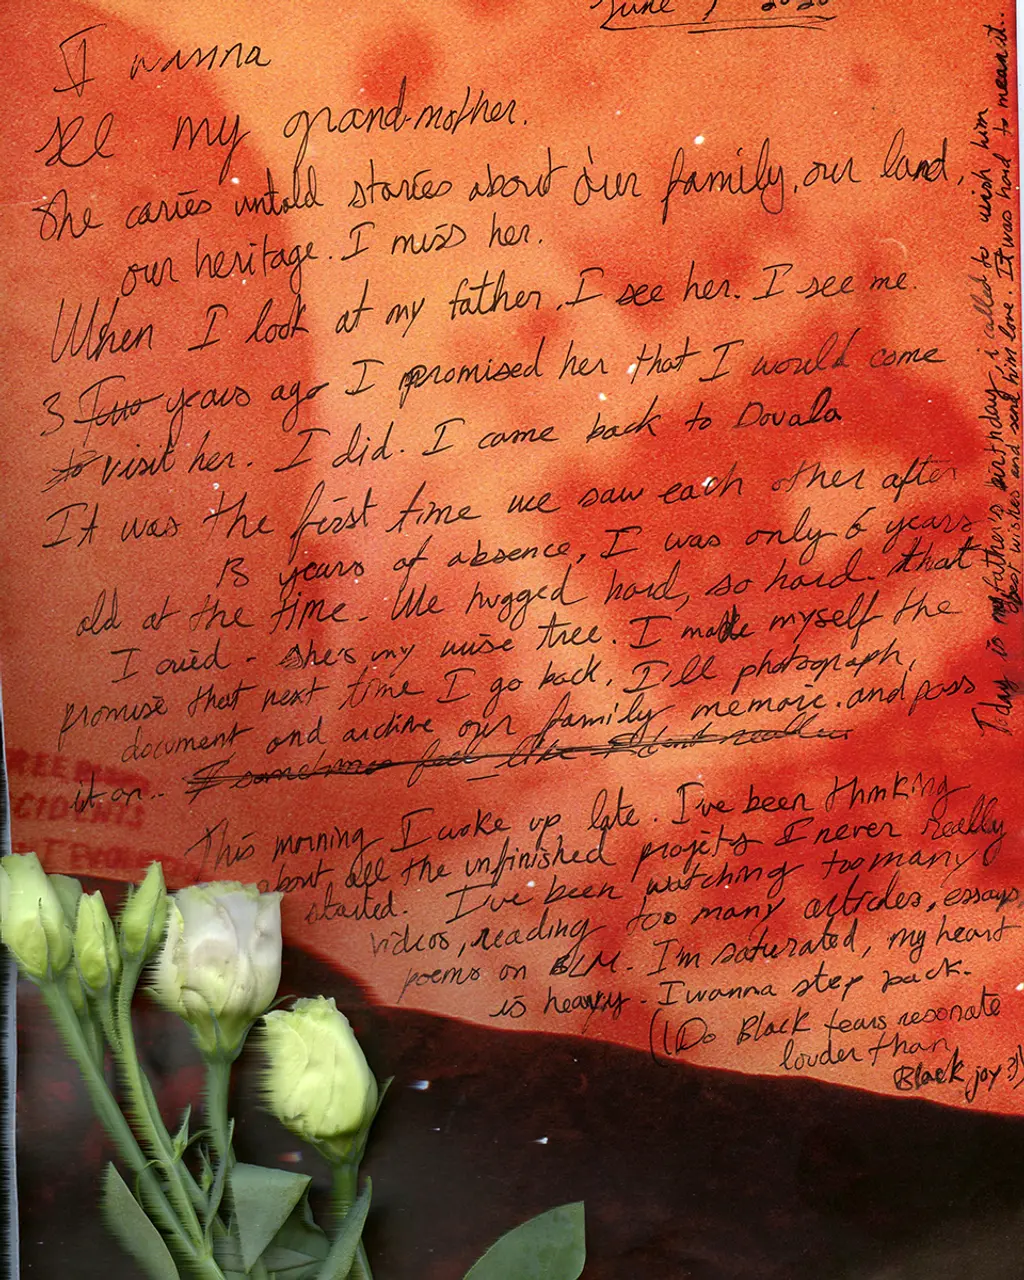 June , 2020
I wanna
see my grand-mother.
She caries untold stories about our family, our land,
our heritage. I miss her.
When I look at my father, I see her. I see me.
3 Two years ago I promised her that I would come
to visit her. I did. I came back to Douala
It was the first time we saw each other after
13 years of absence, I was only 6 years
old at the time. We hugged hard, so hard. that
I cried - she's my wise tree. I made myself the
promise that next time I go back, I'll photograph,
document and archive our family memoire. and pass
it on.. I sometimes feel like I dont really
This morning I woke up late. I've been thinking
about all the unfinished projets I never really
started. I've been watching too many
videos, reading too many articles, essays,
poems on BLM. I'm saturated, my heart
is heavy. I wanna step back.
(!Do Black tears resonate
louder than
Black joy ?)
Today is my father's birthday, i called to wish him
best wishes and send him love. It was hard to mean it..
REE
CIDENTS